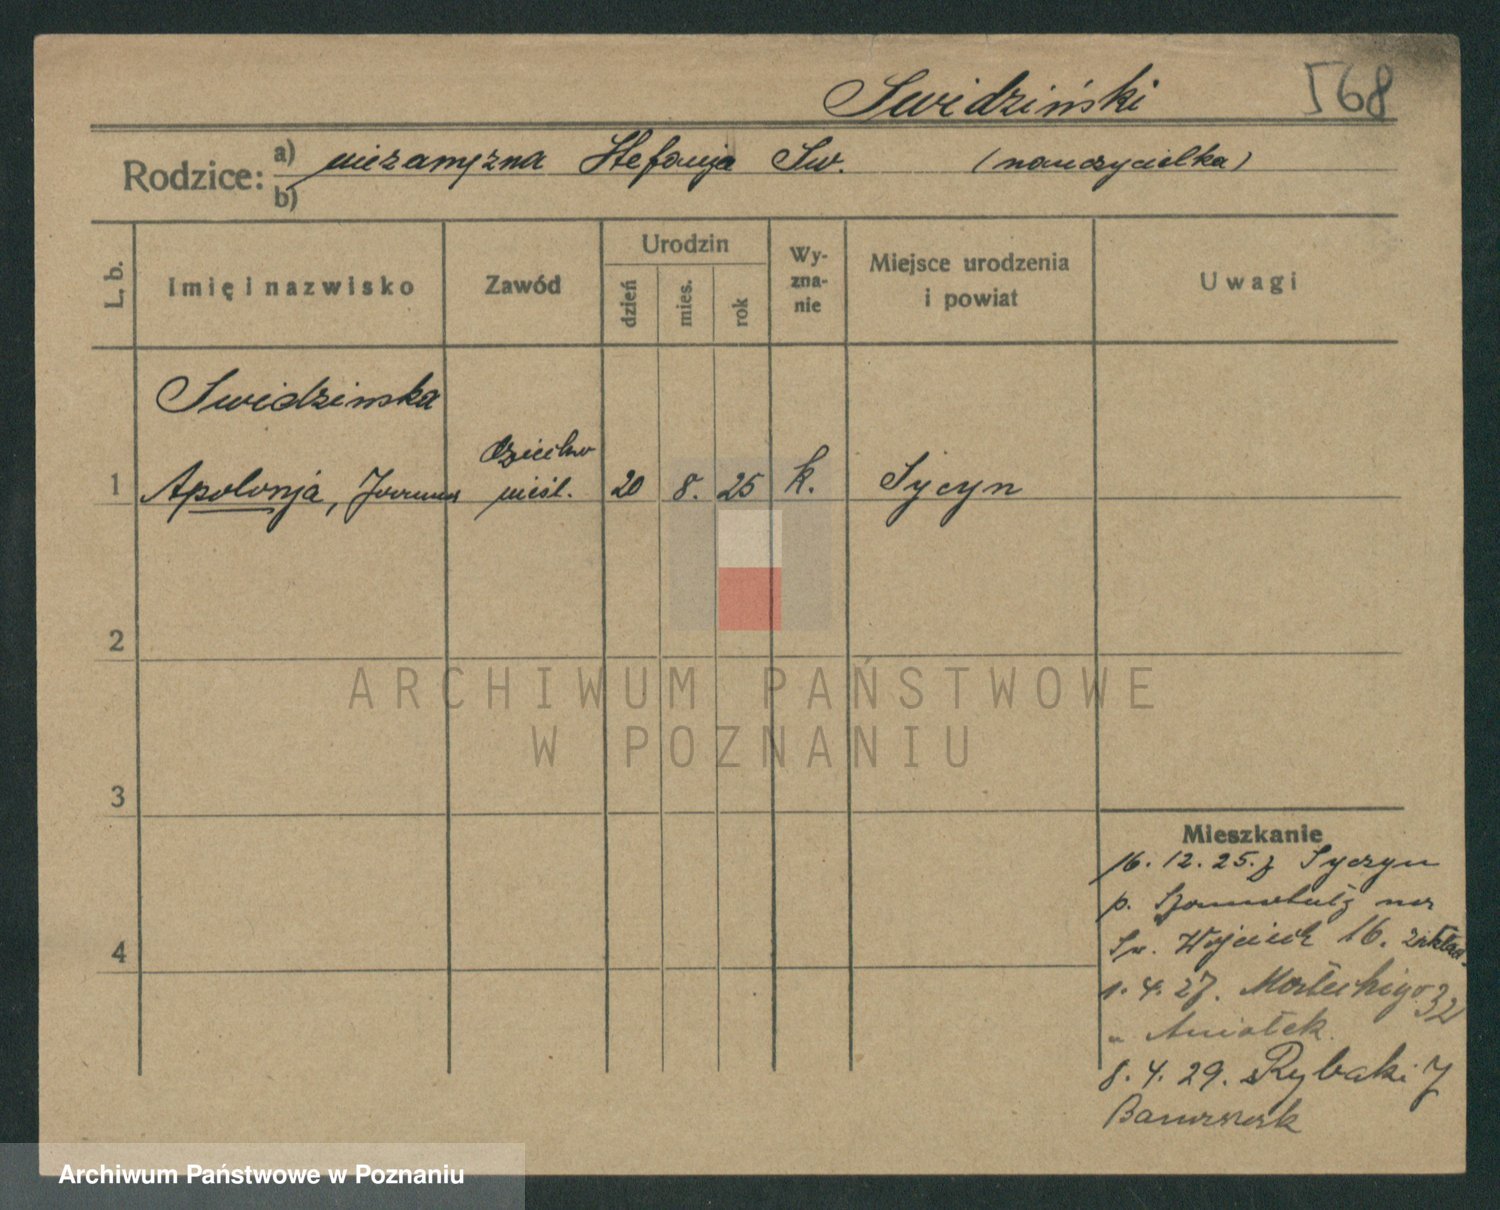 Swidziński 568
Rodzice: a) niezamężna Stefanja Sw. (nauczycielka)
b)
L. b.
Imię i nazwisko
Zawód
Urodzin
dzień
mies.
rok
Wy-
zna-
nie
Miejsce urodzenia
i powiat
Uwagi
Swidzinska
dziecko
1 Apolonja, Joanna nieśl. 20 8. 25 k. Sycyn
2
3
4
ARCHIWUM PAŃSTWOWE
W POZNANIU
Mieszkanie
16. 12. 25. z Syczyn
p.
Św. Wojciech 16. zakład
1. 4. 27. 32
" Aniołek
8. 4. 29. Rybaki 7
Archiwum Państwowe w Poznaniu